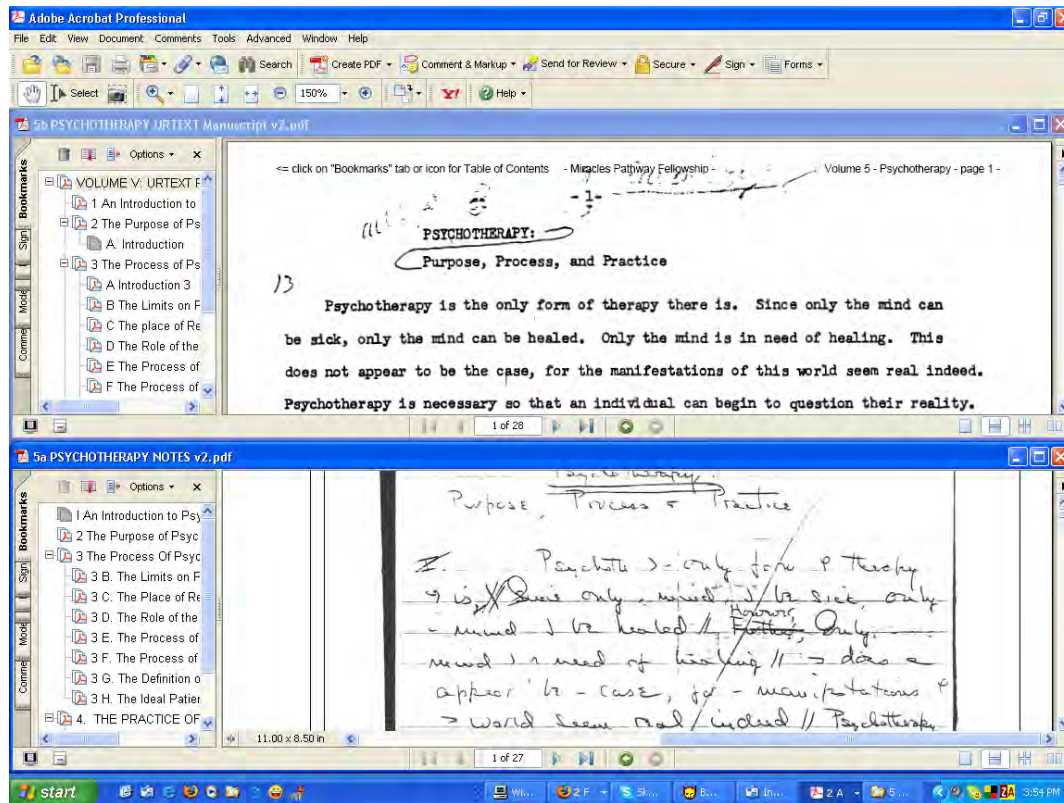 Adobe Acrobat Professional
File Edit View Document Comments Tools Advanced Window Help
Search Create PDF Comment & Markup Send for Review Secure Sign Forms
Select 150% Y! Help
5b PSYCHOTHERAPY URTEXT Manuscript v2.pdf
Options x
Bookmarks
Sign
Mode
Comme
VOLUME V: URTEXT F
1 An Introduction to
2 The Purpose of Ps
A. Introduction
3 The Process of Ps
A Introduction 3
B The Limits on F
C The place of Re
D The Role of the
E The Process of
F The Process of
<= click on "Bookmarks" tab or icon for Table of Contents - Miracles Pathway Fellowship - Volume 5 - Psychotherapy - page 1 -
-1-
PSYCHOTHERAPY:
Purpose, Process, and Practice
13
Psychotherapy is the only form of therapy there is. Since only the mind can
be sick, only the mind can be healed. Only the mind is in need of healing. This
does not appear to be the case, for the manifestations of this world seem real indeed.
Psychotherapy is necessary so that an individual can begin to question their reality.
1 of 28
5a PSYCHOTHERAPY NOTES v2.pdf
Options x
Bookmarks
Sign
Mode
Comme
I An Introduction to Psy
2 The Purpose of Psyc
3 The Process Of Psyc
3 B. The Limits on F
3 C. The Place of Re
3 D. The Role of the
3 E. The Process of
3 F. The Process of
3 G. The Definition o
3 H. The Ideal Patier
4. THE PRACTICE OF
Psychotherapy.
Purpose, Process & Practice
only form therapy
is // Since only mind be sick, only
mind be healed // However, Further, Only
mind need of healing // does
appear case, for manifestations
world seem real indeed // Psychotherapy
11.00 x 8.50 in
1 of 27
start Wi... 2 F S Sk... B... In... 2 A 5 ... ZA 3:54 PM